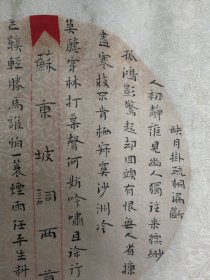 缺月掛疏桐漏斷
人初靜誰見幽人獨往來縹緲
孤鴻影驚起却回頭有恨無人省揀
盡寒枝不肯栖寂寞沙洲冷
蘇東坡詞兩首
莫聽穿林打葉聲何妨吟嘯且徐行
芒鞋輕勝馬誰怕一蓑煙雨任平生料